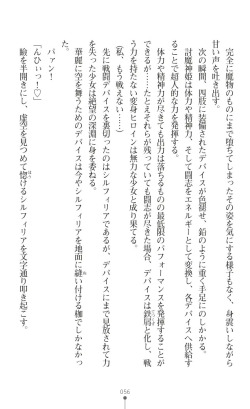 完全に魔物のものにまで堕ちてしまったその姿を気にする様子もなく、身震いしながら
甘い声を吐き出す。
次の瞬間、四肢に装備されたデバイスが色褪せ、鉛のように重く手足にのしかかる。
討魔神姫は体力や精神力、そして闘志をエネルギーとして変換し、各デバイスへ供給す
ることで超人的な力を発揮する。
体力や精神力が尽きても出力は落ちるものの最低限のパフォーマンスを発揮することが
できるが……たとえそれらが残っていても闘志が尽きた場合、デバイスは鉄屑と化し、戦
う力を持たない変身ヒロインは無力な少女と成り果てる。
(私、もう戦えない…)
先に戦闘デバイスを裏切ったのはシルフィリアであるが、デバイスにまで見放されて力
を失った少女は絶望の深淵に身を委ねる。
華麗に空を舞うためのデバイスは今やシルフィリアを地面に縫い付ける枷でしかなかっ
た。
パァン!
「んひぃっ!♡」
瞼を半開きにし、虚空を見つめて惚けるシルフィリアを文字通り叩き起こす。
056